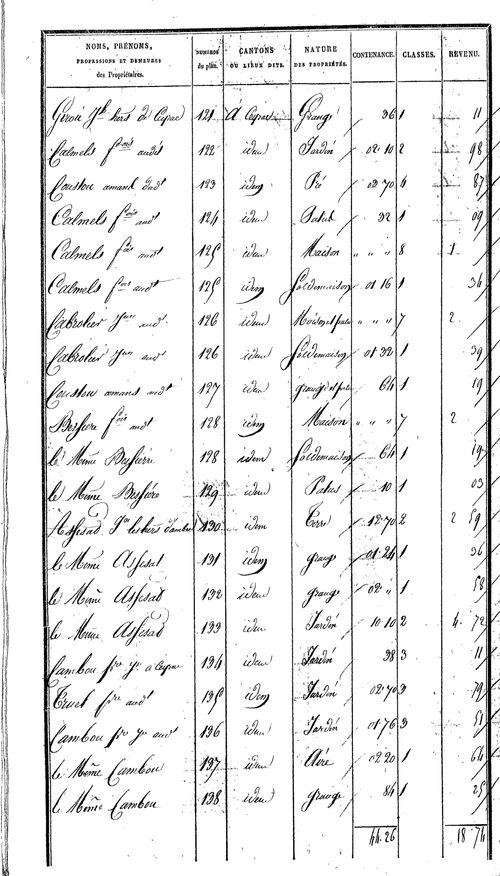 NOMS, PRÉNOMS, PROFESSIONS ET DEMEURES des Propriétaires. NUMÉROS du plan. CANTONS OU LIEUX DITS. NATURE DES PROPRIÉTÉS. CONTENANCE. CLASSES. REVENU.
hers de Cepac 121 A Cepac Grange 36 1 11
Calmels fois audt 122 idem Jardin 02 10 2 98
Couston amand dudt 123 idem Pré 02 70 4 87
Calmels fois audt 124 idem Patus 32 1 09
Calmels fois audt 125 idem Maison " " " 8 1
Calmels fois audt 125 idem Sol de maison 01 16 1 34
Cabrolier audt 126 idem Maison et " " " 7 2
Cabrolier audt 126 idem Sol de maison 01 32 1 39
Couston amand audt 127 idem grange et 64 1 19
Bessiere fois audt 128 idem Maison " " " 7 2
le Même Bessiere 128 idem Sol de maison 64 1 19
le Même Bessiere 129 idem Patus 10 1 03
Assesat 130 idem Terre 12 70 2 2 59
le Même Assesat 131 idem grange 01 24 1 36
le Même Assesat 132 idem grange 02 " 1 58
le Même Assesat 133 idem Jardin 10 10 2 4 72
Cambou a Cepac 134 idem Jardin 38 3 11
Truel audt 135 idem Jardin 02 70 3 79
Cambou audt 136 idem Jardin 01 76 3 51
le Même Cambou 137 idem Aire 02 20 1 64
le Même Cambou 138 idem grange 84 1 25
44 26 18 74